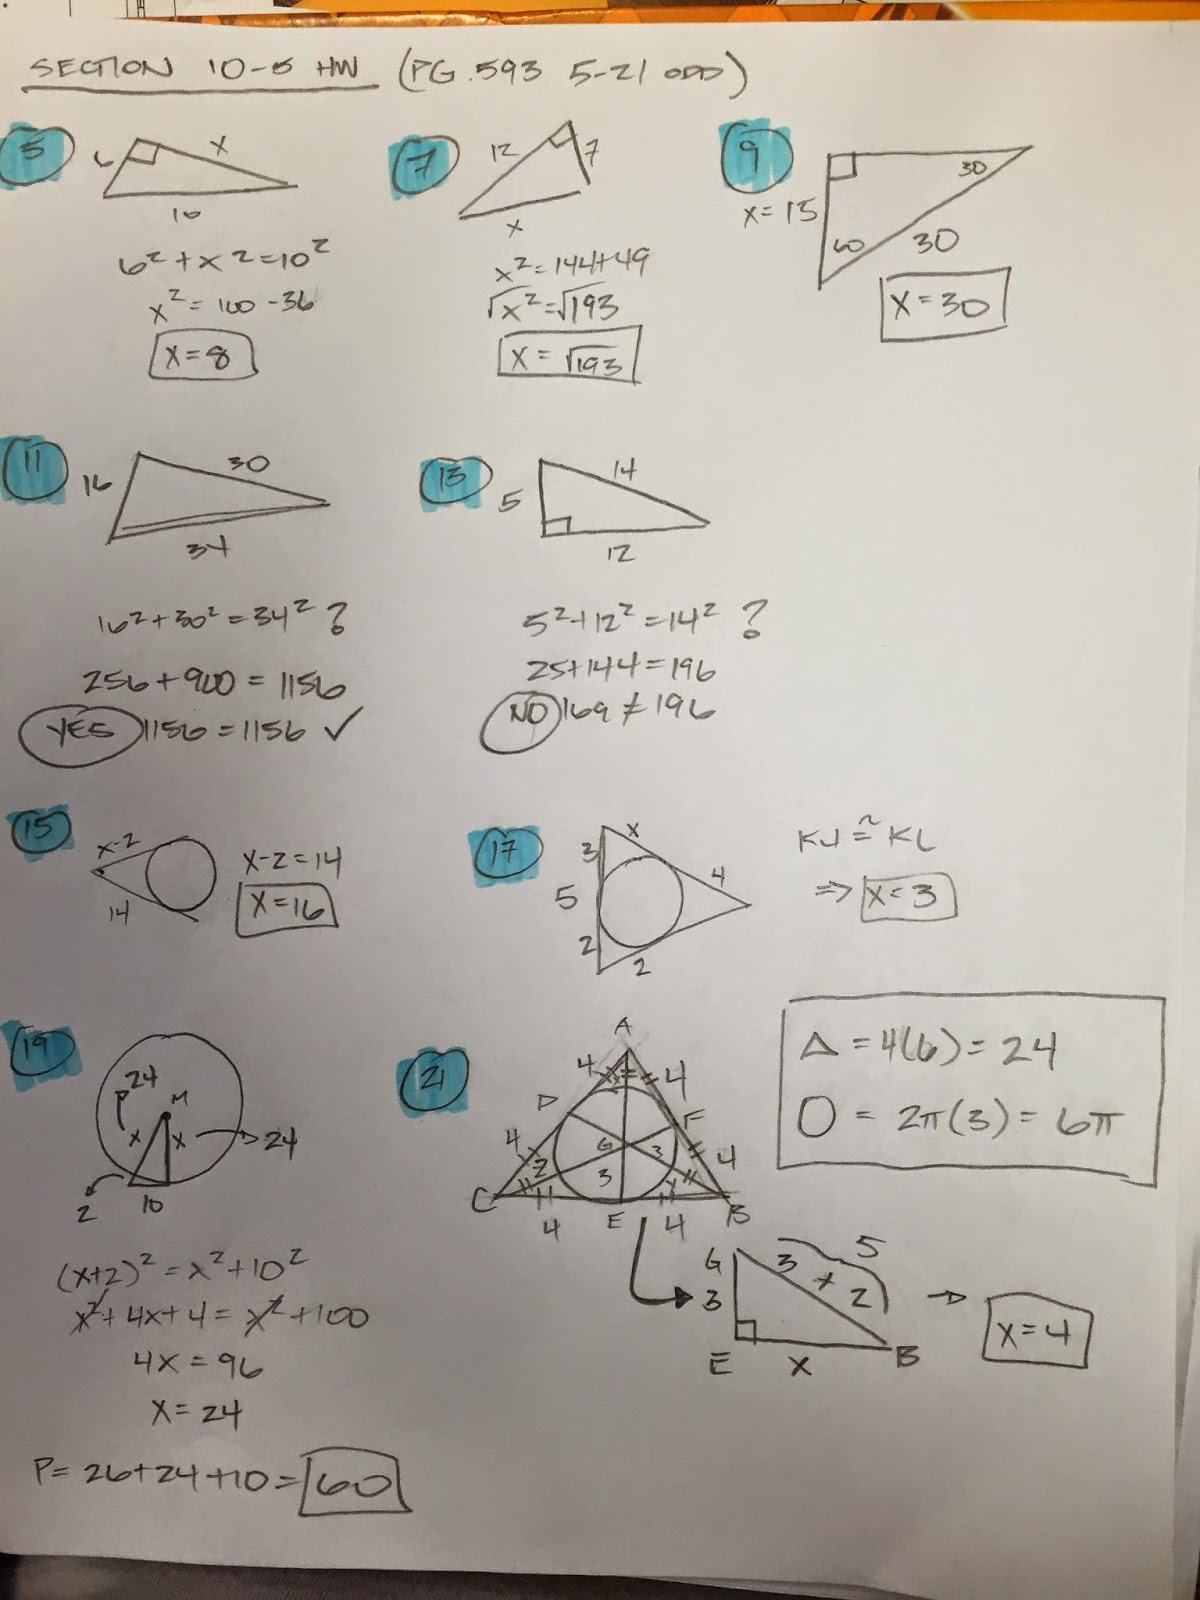 SECTION 10-5 HW (PG.593 5-21 ODD)
5
6
x
10
6² + x² = 10²
x² = 100 - 36
x = 8
7
12
7
x
x² = 144 + 49
√x² = √193
x = √193
9
30
x = 15
60
30
x = 30
11
16
30
34
16² + 30² = 34² ?
256 + 900 = 1156
YES 1156 = 1156 ✓
13
5
14
12
5² + 12² = 14² ?
25 + 144 = 196
NO 169 ≠ 196
15
x-2
14
x-2 = 14
x = 16
17
3
x
5
4
2
2
KJ ≅ KL
⇒ x = 3
19
24
M
x
x → 24
2
10
(x+2)² = x² + 10²
x² + 4x + 4 = x² + 100
4x = 96
x = 24
P = 26 + 24 + 10 = 60
21
A
4
4
D
F
4
G
3
4
Z
3
Y
C
E
B
4
4
△ = 4(6) = 24
O = 2π(3) = 6π
G
3
+
2
5
3
E
x
B
→ x = 4